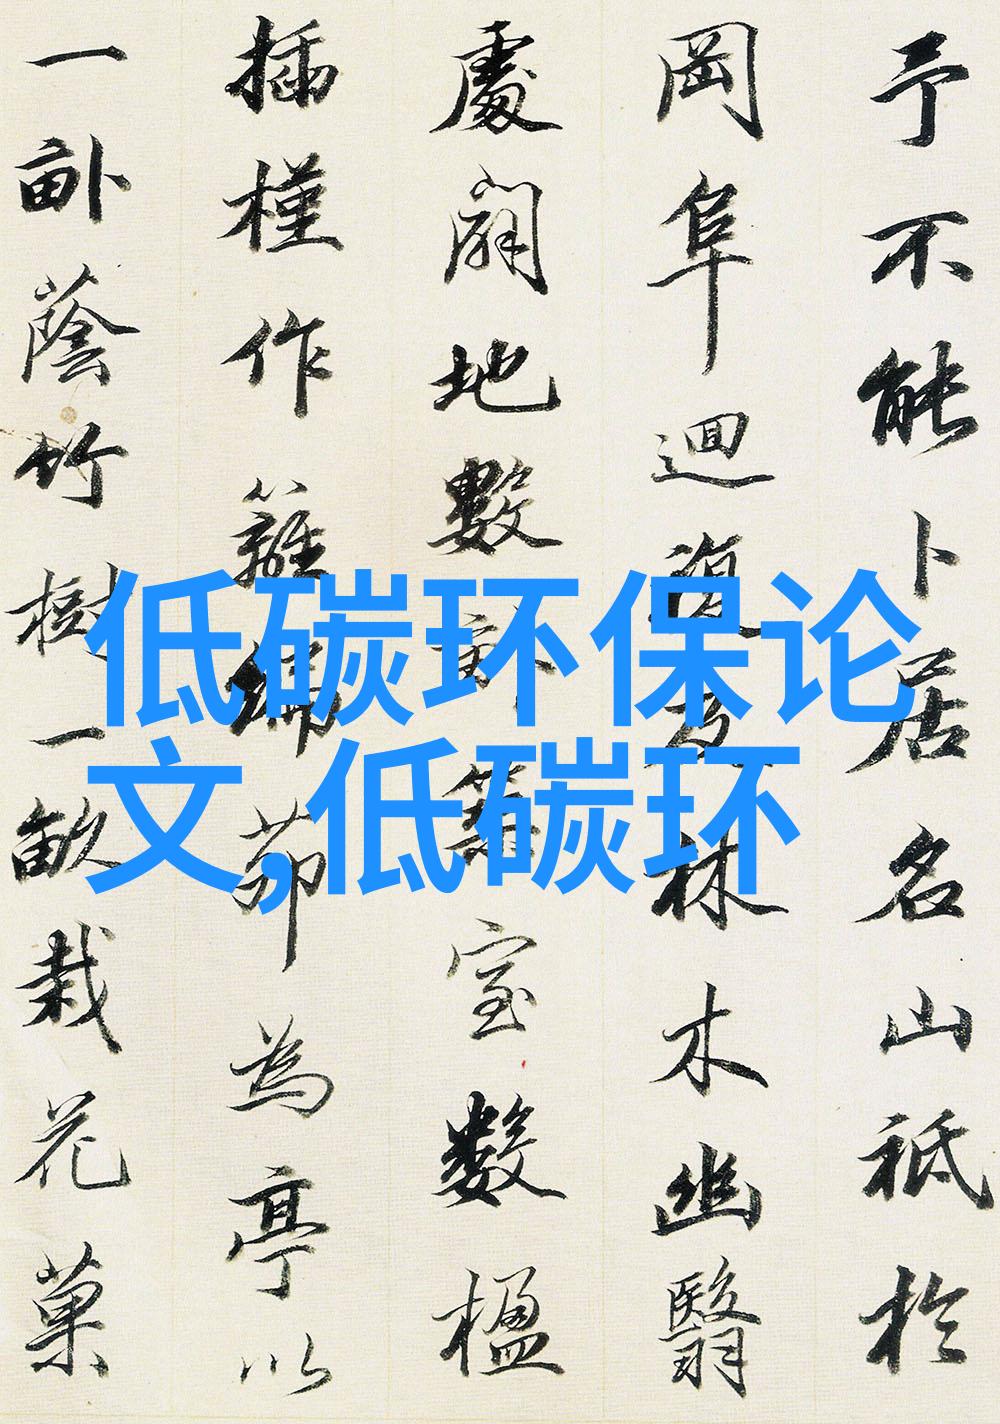 予不能卜居名山祗於
岡阜迴復為林木幽翳
處闢地數畝築室數楹
插槿作籬編茆為亭以
一畝蔭竹樹一畝栽花菓
低碳环保论
文,低碳环